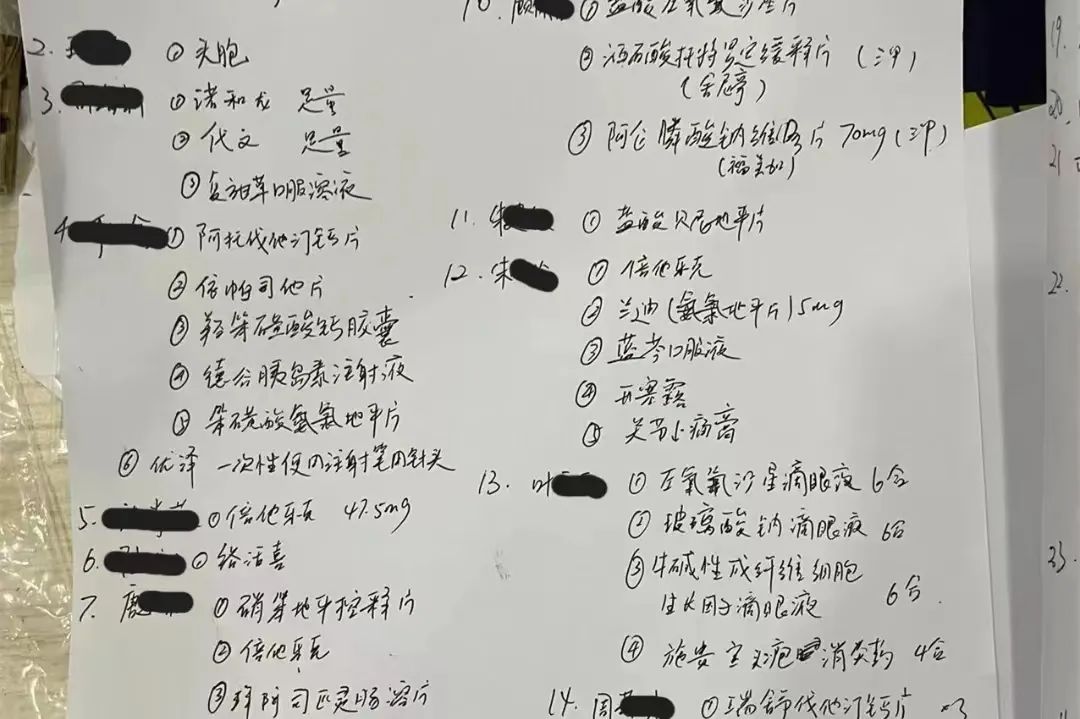 2. ① 头胞
3. ① 诺和龙 足量
② 代文 足量
③ 复甜草口服溶液
4. ① 阿托伐他汀钙片
② 依帕司他片
③ 羟苯磺酸钙胶囊
④ 德谷胰岛素注射液
⑤ 苯磺酸氨氯地平片
⑥ 优泽 一次性使用注射笔用针头
5. ① 倍他乐克 47.5mg
6. ① 络活喜
7. ① 硝苯地平控释片
② 倍他乐克
③ 拜阿司匹灵肠溶片
10. 顾 ① 盐酸左氧氟沙星片
② 酒石酸托特罗定缓释片 (三甲)
(舍尼亭)
③ 阿仑膦酸钠维D片 70mg (三甲)
(福美加)
11. 朱 ① 盐酸贝尼地平片
12. 朱 ① 倍他乐克
② 兰迪 (氨氯地平片) 5mg
③ 蓝芩口服液
④ 开塞露
⑤ 关节止痛膏
13. 叶 ① 左氧氟沙星滴眼液 6合
② 玻璃酸钠滴眼液 6合
③ 牛碱性成纤维细胞
生长因子滴眼液 6合
④ 施贵宝 头疱 消炎药 4合
14. 周 ① 瑞舒伐他汀钙片 ×3
19.
20.
21
22.
23.